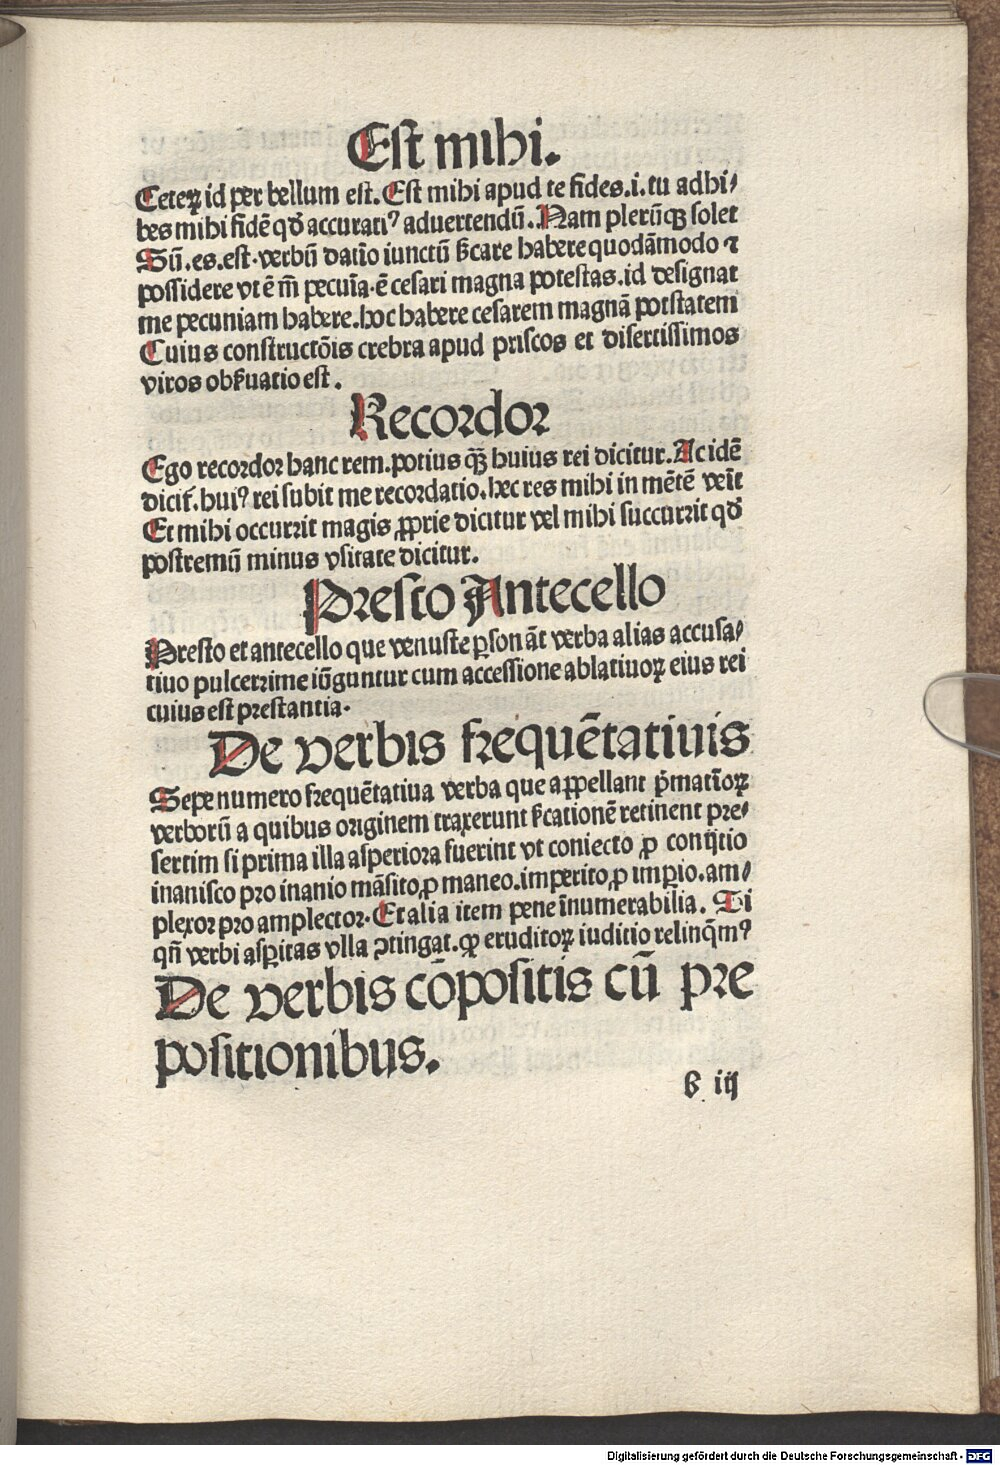 Est mihi.
Ceteꝝ id per bellum est. Est mihi apud te fides.i.tu adhi⸗
bes mihi fidē qđ accurati⁹ aduertendū. Nam plerūqꝫ solet
Sū.es.est.verbū datio iunctū ſ̄care habere quodāmodo ⁊
possidere vt ē m̄ pecuīa.ē cesari magna potestas.id designat
me pecuniam habere.hoc habere cesarem magnā potstatem
Cuius constructōis crebra apud priscos et disertissimos
viros obẜuatio est.
Recordor
Ego recordor hanc rem.potius qꝫ̄ huius rei dicitur. Ac idē
dicit̄.hui⁹ rei subit me recordatio.hec res mihi in mētē veīt
Et mihi occurrit magis ꝓprie dicitur vel mihi succurrit qđ
postremū minus vsitate dicitur.
Presto Antecello
Presto et antecello que venuste ꝑson āt verba alias accusa⸗
tiuo pulcerrime iūguntur cum accessione ablatiuoꝝ eius rei
cuius est prestantia.
De verbis frequētatiuis
Sepe numero frequētatiua verba que appellant p̄matiōꝝ
verborū a quibus originem traxerunt ſ̄cationē retinent pre⸗
sertim si prima illa asperiora fuerint vt coniecto ꝓ conijtio
inanisco pro inanio māsito,ꝓ maneo.imperito,ꝓ imꝑio.am⸗
plexor pro amplector. Et alia item pene īnumerabilia. Si
qn̄ verbi asꝑitas vlla ↄtingat.qꝙ eruditoꝝ iuditio relinq̄m⁹
De verbis cōpositis cū pre
positionibus.
b iij
Digitalisierung gefördert durch die Deutsche Forschungsgemeinschaft - DFG